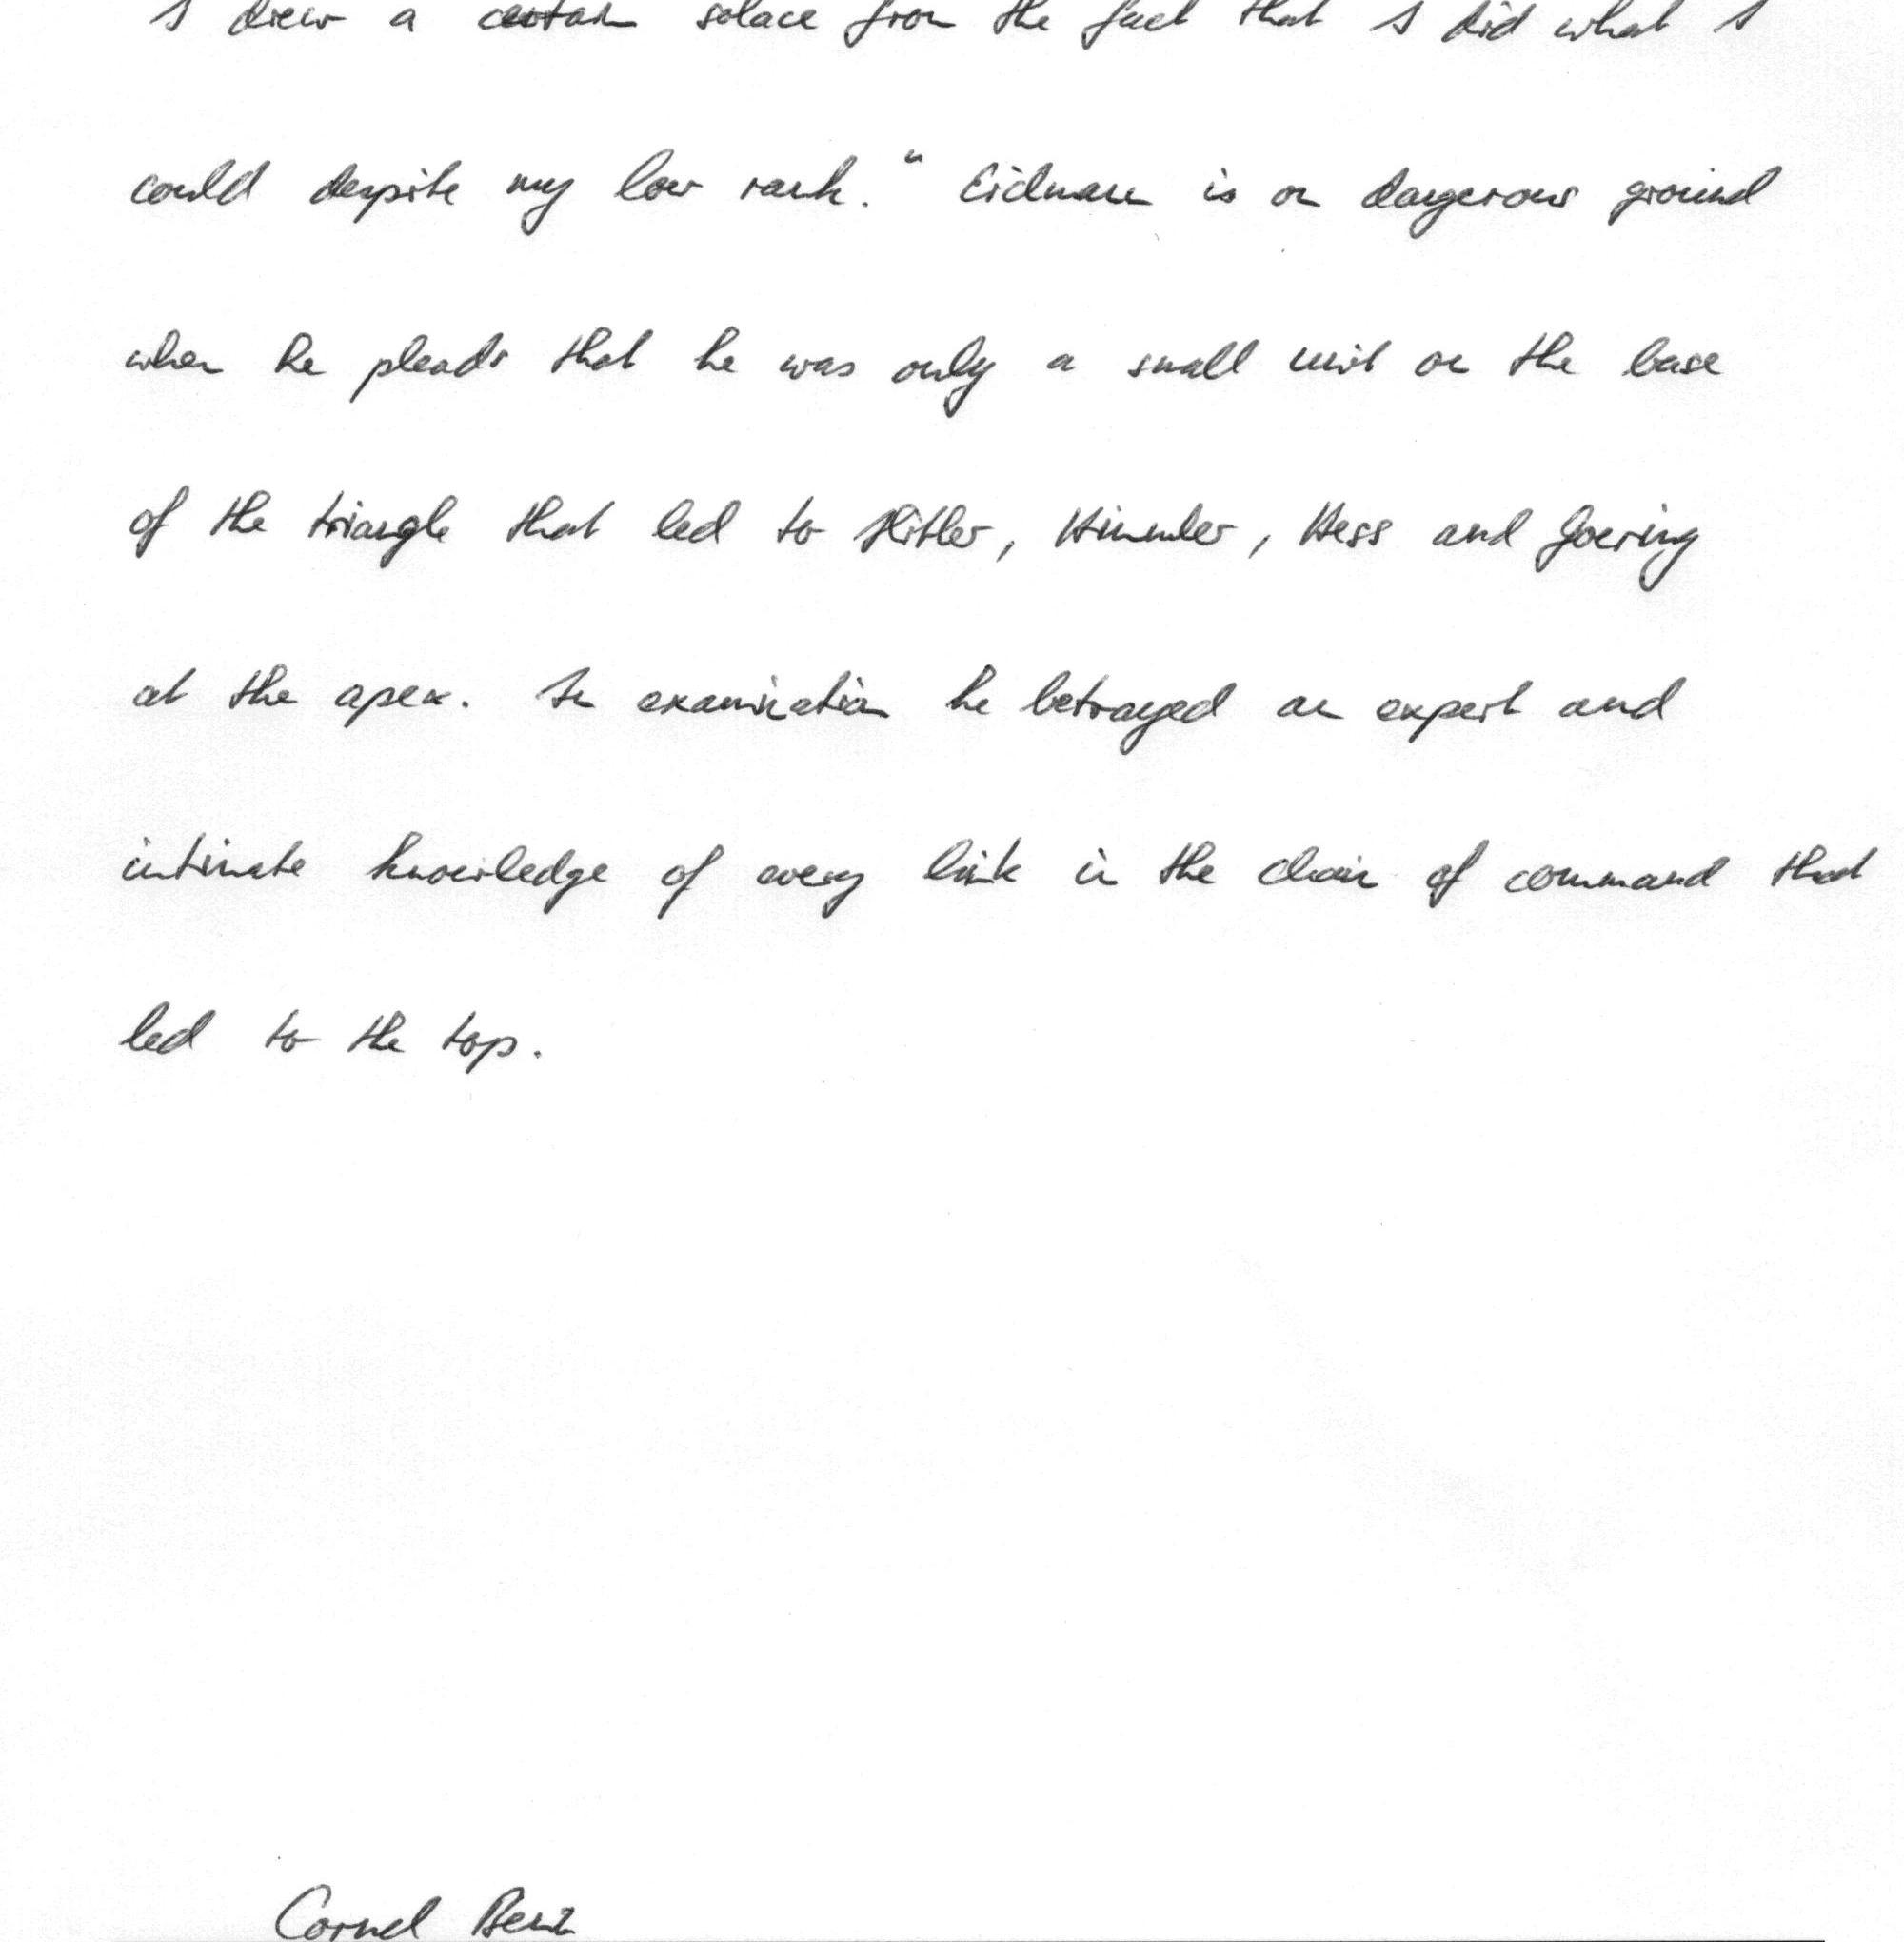 I drew a certain solace from the fact that I did what I
could despite my low rank." Eichmann is on dangerous ground
when he pleads that he was only a small unit on the base
of the triangle that led to Hitler, Himmler, Hess and Goering
at the apex. In examination he betrayed an expert and
intimate knowledge of every link in the chain of command that
led to the top.
Cornel Benz